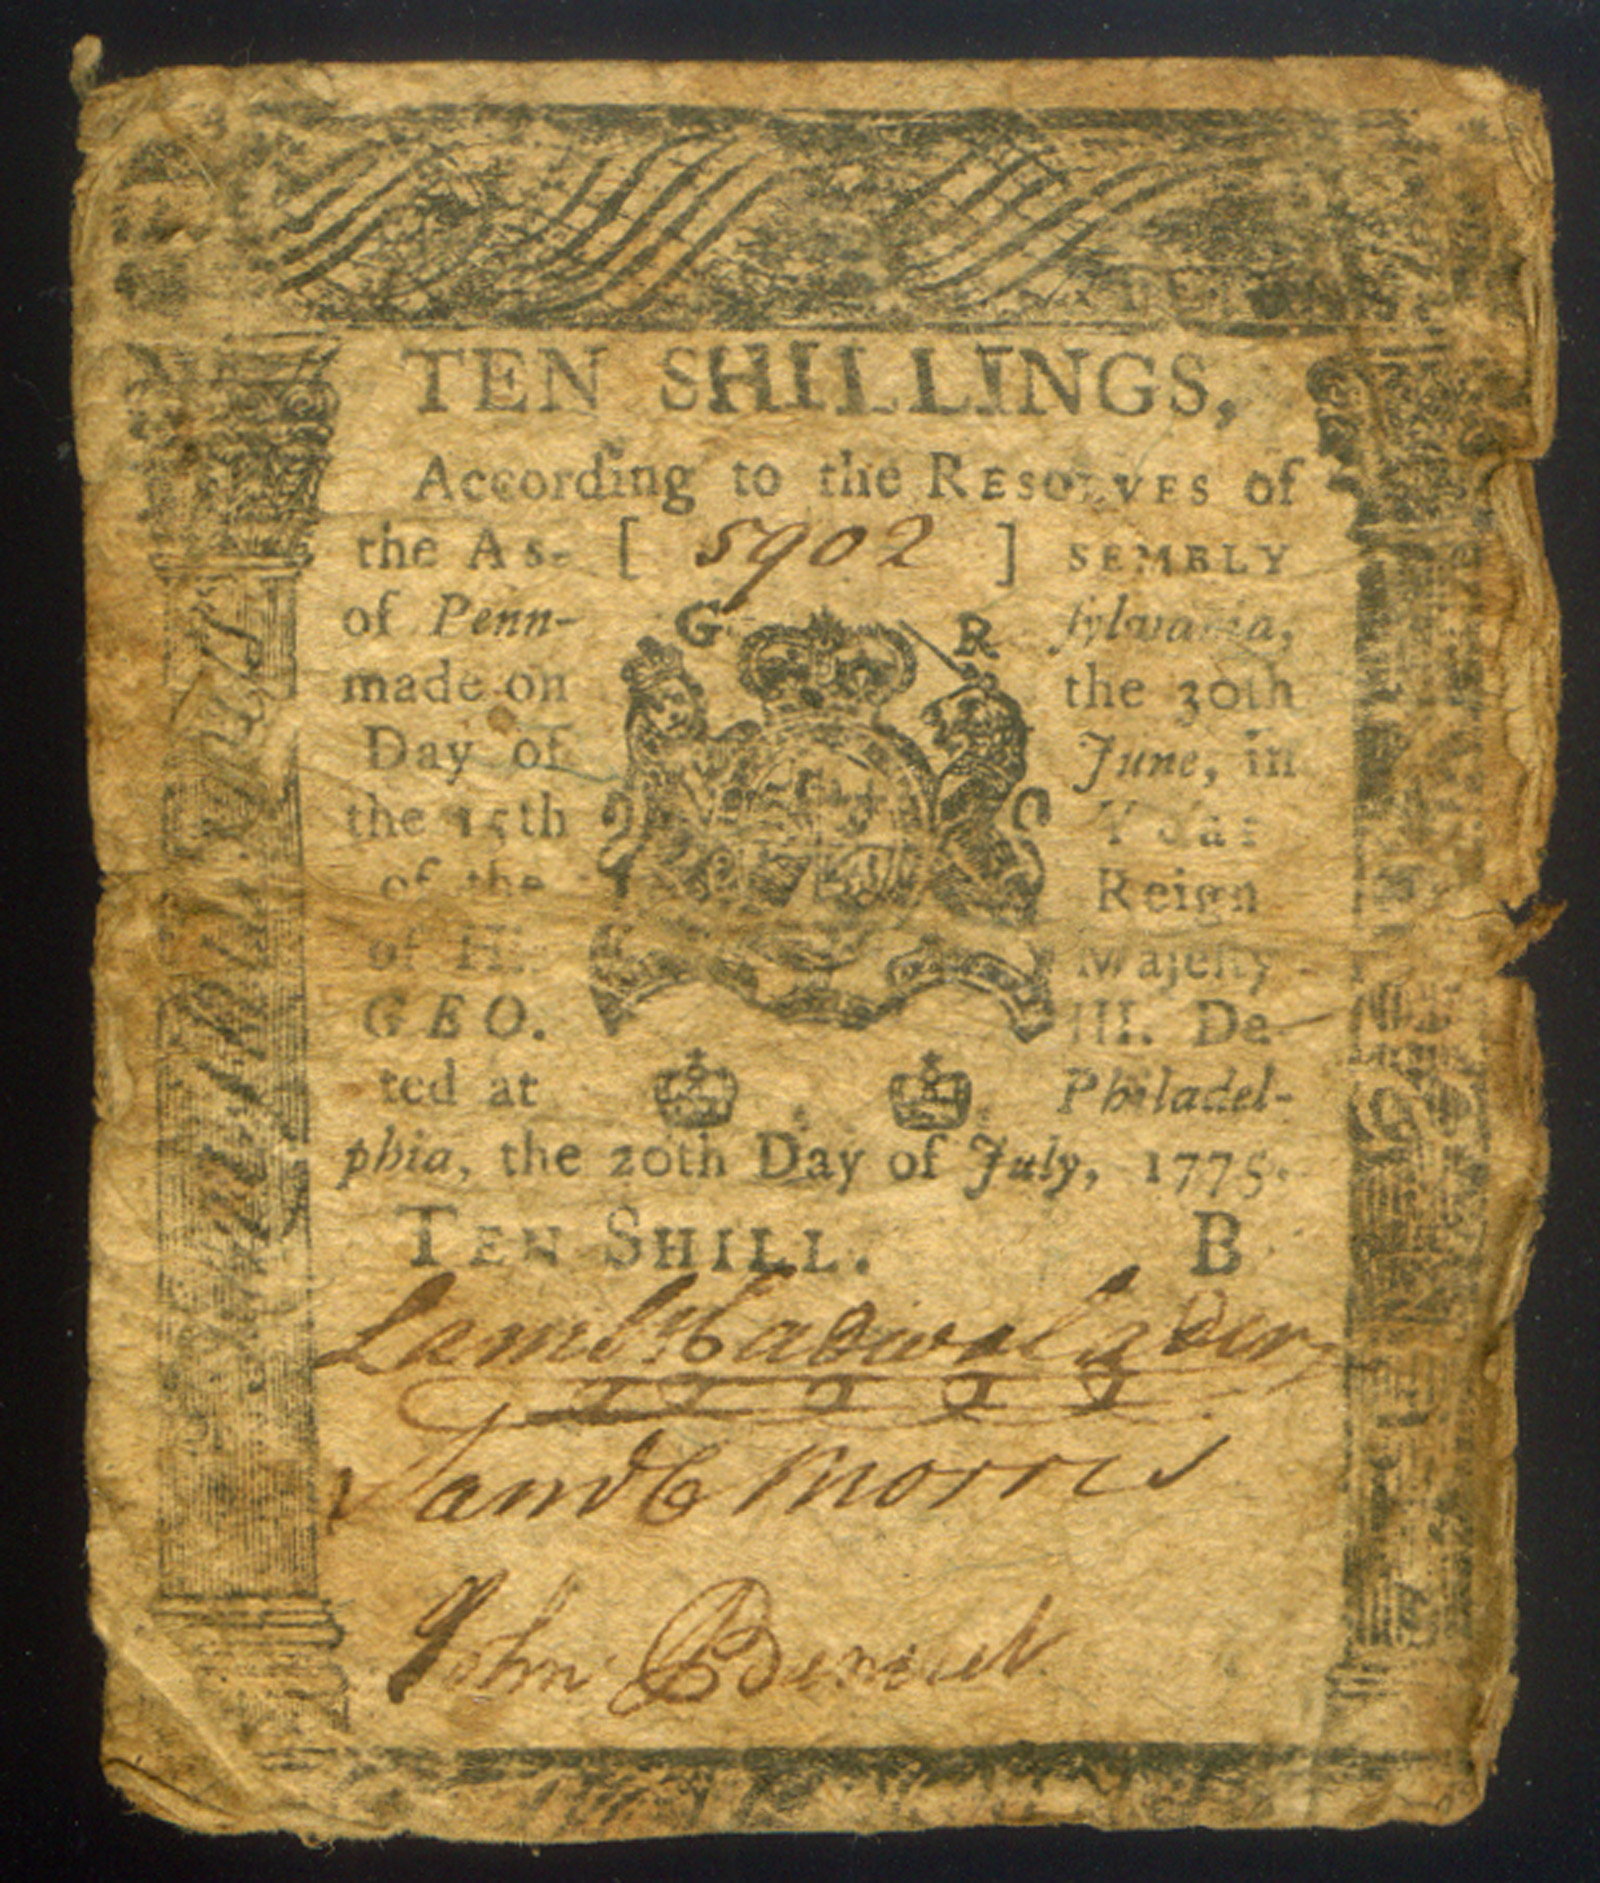 TEN SHILLINGS,
According to the RESOLVES of
the As- [ 5902 ] SEMBLY
of Penn- G R sylvania,
made on the 30th
Day of June, in
the 15th Year
of the Reign
of His Majesty
GEO. III. Da-
ted at Philadel-
phia, the 20th Day of July, 1775.
TEN SHILL. B
Lamb Cadwalader
Sam C Morris
John Benezet